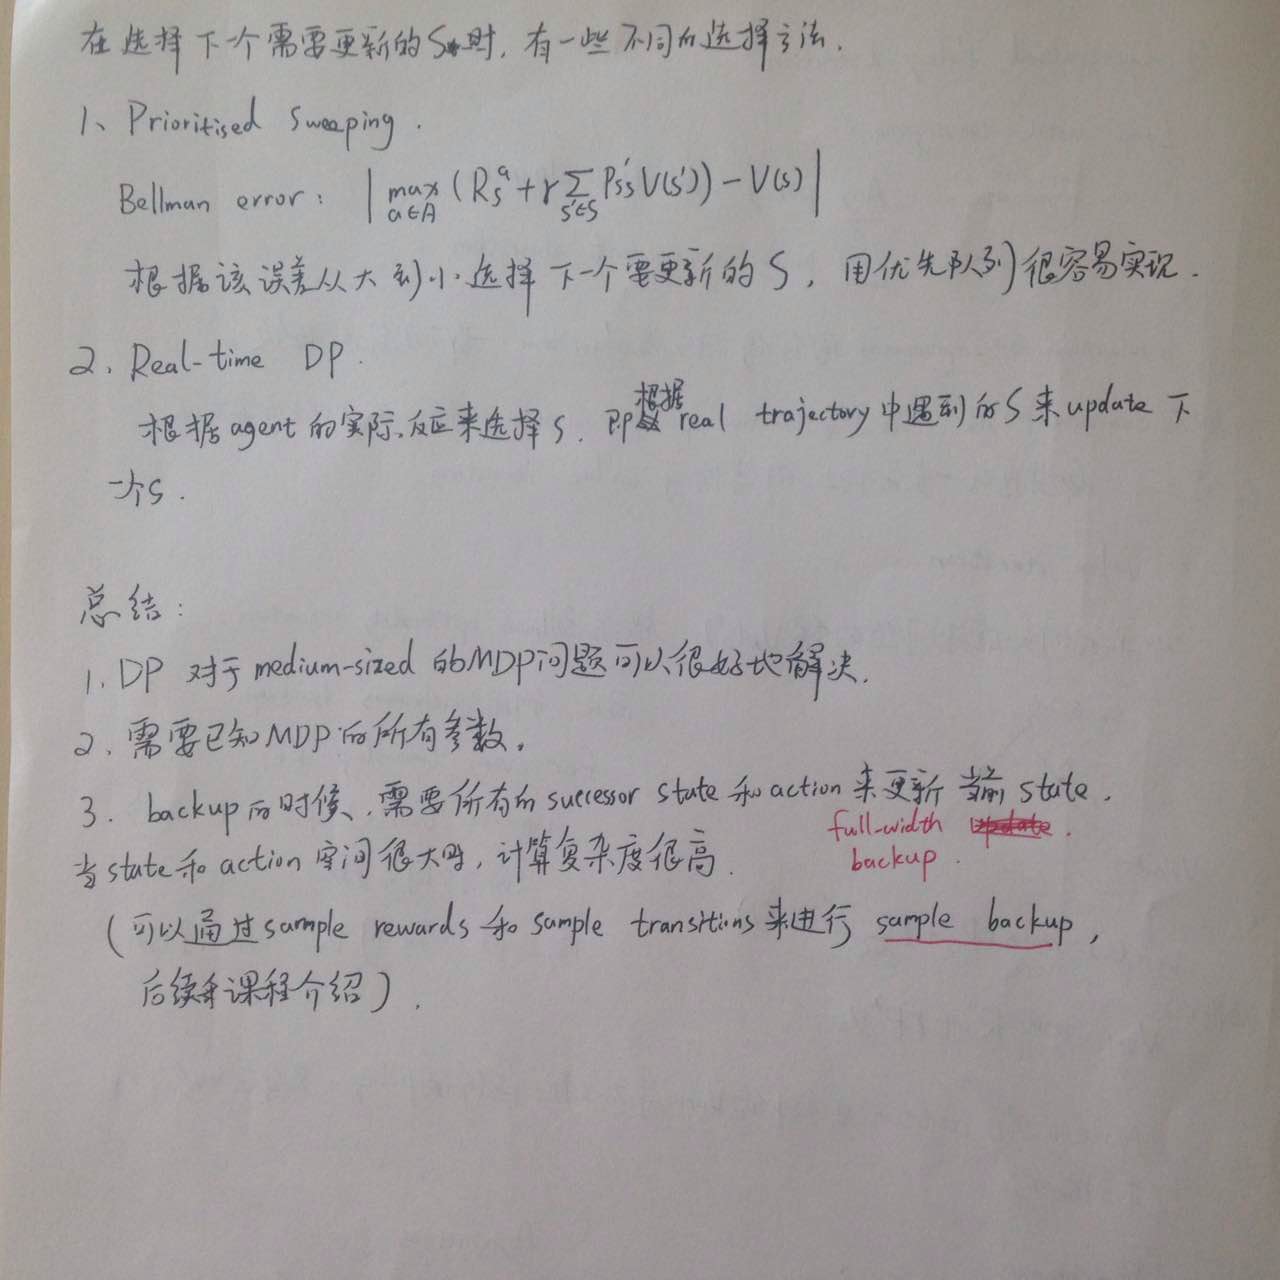 在选择下个需要更新的S时，有一些不同的选择方法.
1、Prioritised Sweeping.
Bellman error: | max a∈A (Rsᵃ + γ Σ s'∈S Pss' V(s')) - V(s) |
根据该误差从大到小选择下一个需更新的S，用优先队列很容易实现.
2. Real-time DP.
根据agent的实际反应来选择S. 即根据real trajectory中遇到的S来update下
一个S.
总结:
1. DP 对于medium-sized的MDP问题可以很好地解决.
2. 需要已知MDP的所有参数.
3. backup的时候，需要所有的successor state和action来更新当前state.
full-width update.
backup.
当state和action空间很大时，计算复杂度很高.
(可以通过sample rewards和sample transitions来进行sample backup,
后续课程介绍).